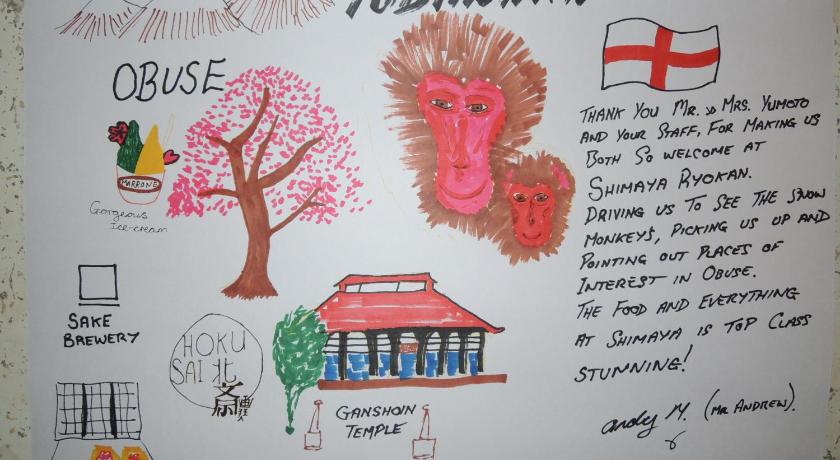 OBUSE
MARRONE
Gorgeous
Ice-cream
SAKE
BREWERY
HOKU
SAI 北
斎
GANSHOIN
TEMPLE
THANK YOU MR. & MRS. YUMOTO
AND YOUR STAFF, FOR MAKING US
BOTH SO WELCOME AT
SHIMAYA RYOKAN.
DRIVING US TO SEE THE SNOW
MONKEYS, PICKING US UP AND
POINTING OUT PLACES OF
INTEREST IN OBUSE.
THE FOOD AND EVERYTHING
AT SHIMAYA IS TOP CLASS
STUNNING!
andy M. (MR ANDREW).